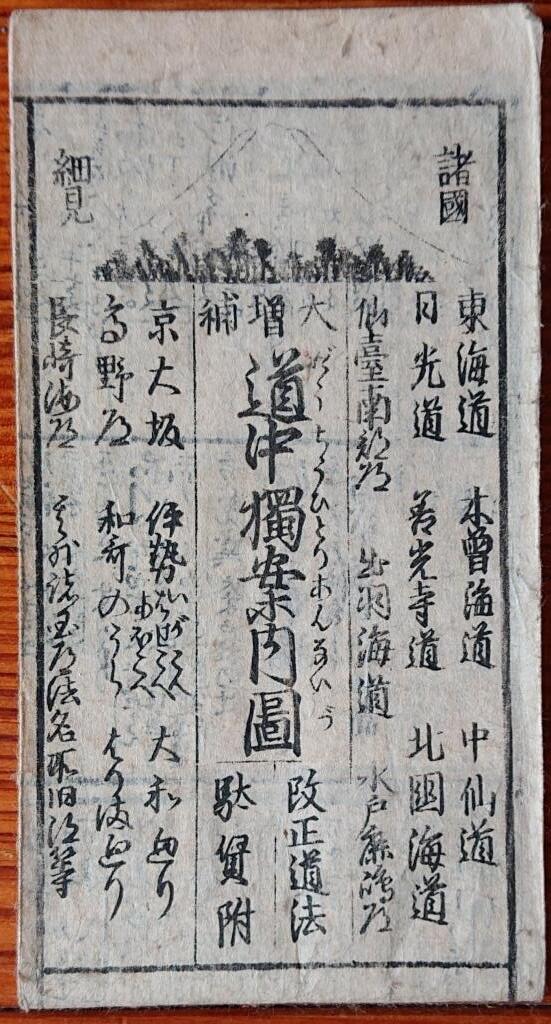 諸國
細見
東海道 木曽海道 中仙道
日光道 善光寺道 北国海道
仙臺南部道 出羽海道 水戸鹿嶋道
大
増補
だうちうひとりあんないづ
道中獨案内圖
改正道法
駄賃附
京大坂 伊勢 大和めぐり
高野道 和哥のうら はりまめぐり
長崎海道 其外諸国道法名所旧跡等